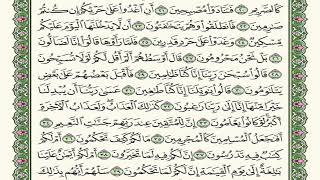 كَٱلصَّرِيمِ ٢٠ فَتَنَادَوْا۟ مُصْبِحِينَ ٢١ أَنِ ٱغْدُوا۟ عَلَىٰ حَرْثِكُمْ إِن كُنتُمْ
صَٰرِمِينَ ٢٢ فَٱنطَلَقُوا۟ وَهُمْ يَتَخَٰفَتُونَ ٢٣ أَن لَّا يَدْخُلَنَّهَا ٱلْيَوْمَ عَلَيْكُم
مِّسْكِينٌ ٢٤ وَغَدَوْا۟ عَلَىٰ حَرْدٍ قَٰدِرِينَ ٢٥ فَلَمَّا رَأَوْهَا قَالُوٓا۟ إِنَّا لَضَآلُّونَ
٢٦ بَلْ نَحْنُ مَحْرُومُونَ ٢٧ قَالَ أَوْسَطُهُمْ أَلَمْ أَقُل لَّكُمْ لَوْلَا تُسَبِّحُونَ
٢٨ قَالُوا۟ سُبْحَٰنَ رَبِّنَآ إِنَّا كُنَّا ظَٰلِمِينَ ٢٩ فَأَقْبَلَ بَعْضُهُمْ عَلَىٰ بَعْضٍ
يَتَلَٰوَمُونَ ٣٠ قَالُوا۟ يَٰوَيْلَنَآ إِنَّا كُنَّا طَٰغِينَ ٣١ عَسَىٰ رَبُّنَآ أَن يُبْدِلَنَا
خَيْرًا مِّنْهَآ إِنَّآ إِلَىٰ رَبِّنَا رَٰغِبُونَ ٣٢ كَذَٰلِكَ ٱلْعَذَابُ وَلَعَذَابُ ٱلْـَٔاخِرَةِ
أَكْبَرُ لَوْ كَانُوا۟ يَعْلَمُونَ ٣٣ إِنَّ لِلْمُتَّقِينَ عِندَ رَبِّهِمْ جَنَّٰتِ ٱلنَّعِيمِ ٣٤
أَفَنَجْعَلُ ٱلْمُسْلِمِينَ كَٱلْمُجْرِمِينَ ٣٥ مَا لَكُمْ كَيْفَ تَحْكُمُونَ ٣٦ أَمْ لَكُمْ
كِتَٰبٌ فِيهِ تَدْرُسُونَ ٣٧ إِنَّ لَكُمْ فِيهِ لَمَا تَخَيَّرُونَ ٣٨ أَمْ لَكُمْ أَيْمَٰنٌ عَلَيْنَا
بَٰلِغَةٌ إِلَىٰ يَوْمِ ٱلْقِيَٰمَةِ إِنَّ لَكُمْ لَمَا تَحْكُمُونَ ٣٩ سَلْهُمْ أَيُّهُم بِذَٰلِكَ